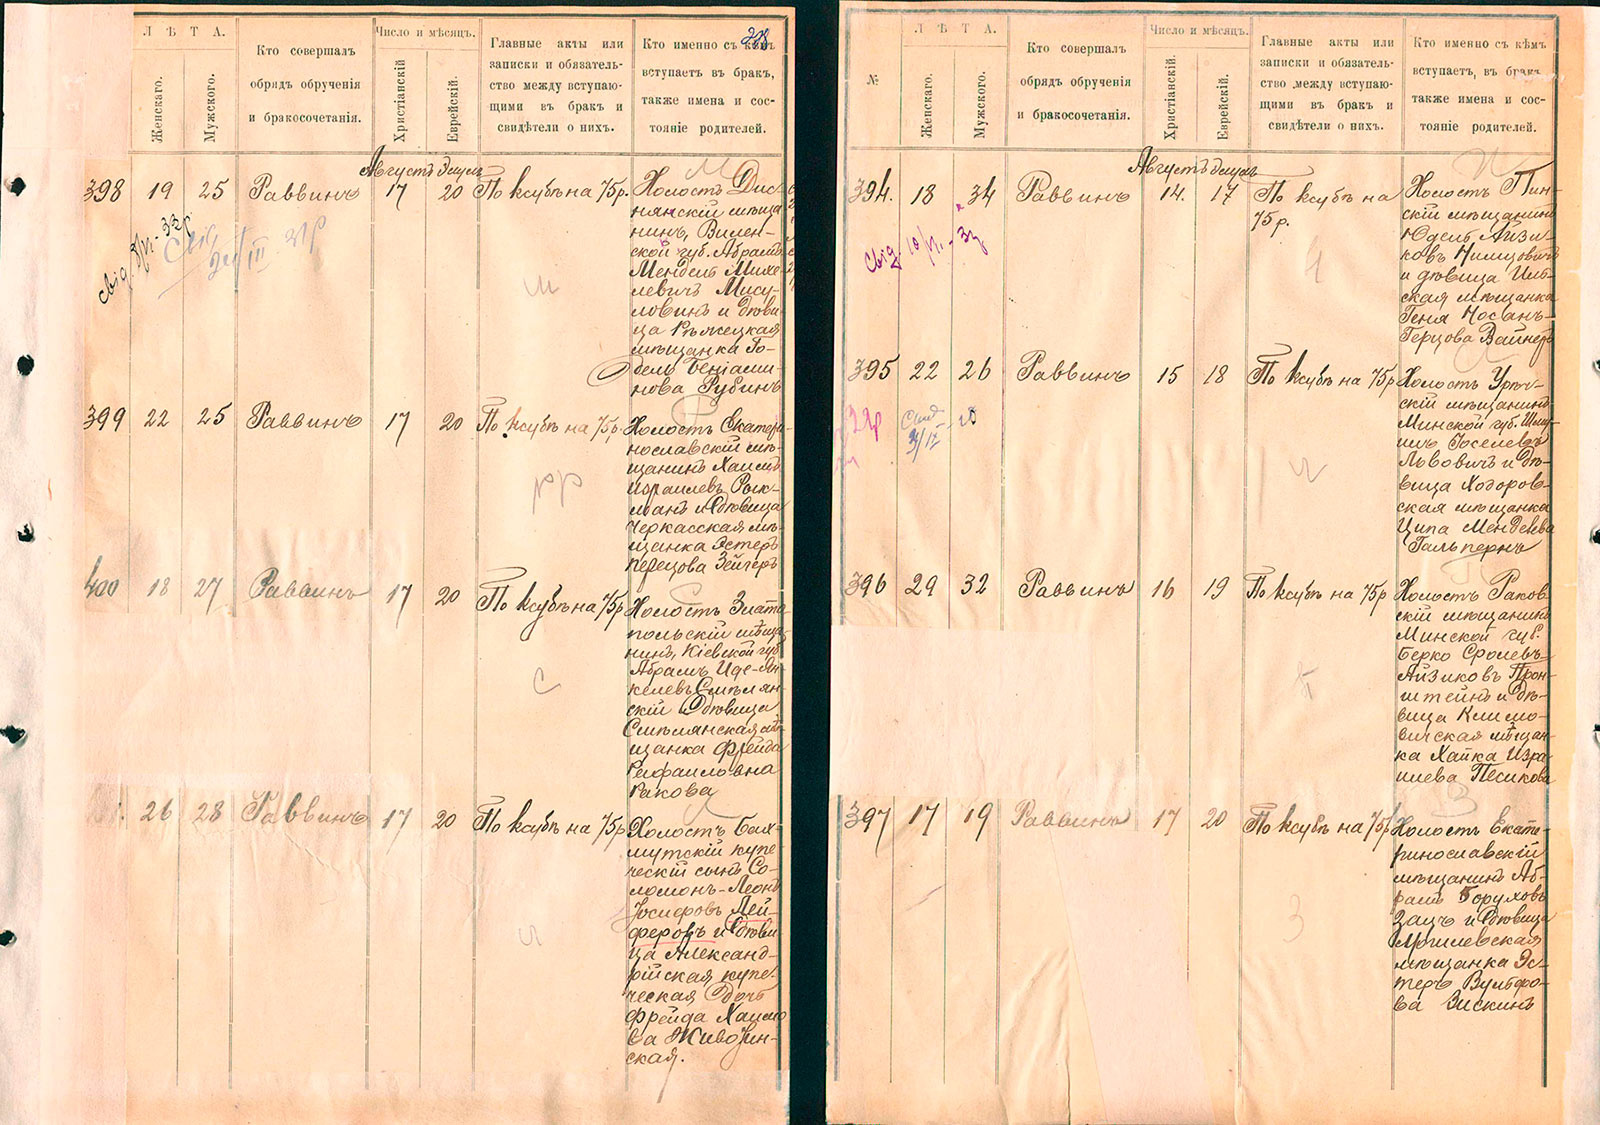 208
Л Ѣ Т А.
Женскаго.
Мужского.
Кто совершалъ
обрядъ обрученія
и бракосочетанія.
Число и мѣсяцъ.
Христіанскій
Еврейскій.
Главные акты или
записки и обязатель-
ство между вступаю-
щими въ бракъ и
свидѣтели о нихъ.
Кто именно съ кѣмъ
вступаетъ въ бракъ,
также имена и сос-
тояніе родителей.
Августъ Элулъ
398 19 25 Раввинъ 17 20 По ксубѣ на 75 р.
Холостъ Дис-
нянскій мѣща
нинъ, Вилен-
ской губ. Абрамъ
Мендель Михе-
левичъ Мису-
ловинъ и дѣви
ца Рѣжецкая
мѣщанка Го-
дель Беніами-
нова Рубинъ
399 22 25 Раввинъ 17 20 По ксубѣ на 75 р.
Холостъ Екатери
нославскій мѣ-
щанинъ Хаимъ
Израилевъ Рык-
манъ и дѣвица
Черкасская мѣ-
щанка Эстеръ
Перецова Зейгеръ
400 18 27 Раввинъ 17 20 По ксубѣ на 75 р
Холостъ Злато
польскій мѣща
нинъ, Кіевской губ
Абрамъ Иде-Ян-
келевъ Смѣлян-
скій и дѣвица
Смѣлянская мѣ
щанка Фрейда
Рафаиловна
Ракова
26 28 Раввинъ 17 20 По ксубѣ на 75 р
Холостъ Бах-
мутскій купе-
ческій сынъ Со-
ломонъ-Леонъ
Іосифовъ Лей-
феровъ и дѣви
ца Александ-
рійская купе-
ческая дочь
Фрейда Хаимо
ва Живот
ская.
№
Л Ѣ Т А.
Женскаго.
Мужского.
Кто совершалъ
обрядъ обрученія
и бракосочетанія.
Число и мѣсяцъ.
Христіанскій
Еврейскій.
Главные акты или
записки и обязатель-
ство между вступаю-
щими въ бракъ и
свидѣтели о нихъ.
Кто именно съ кѣмъ
вступаетъ, въ бракъ
также имена и сос-
тояніе родителей.
Августъ Элулъ
394. 18 34 Раввинъ 14. 17 По ксубѣ на
75 р.
Холостъ Пин-
скій мѣщанинъ
Юдель Айзи-
ковъ Нимцовичъ
и дѣвица
ская мѣщанка
Геня Носанъ-
Герцова Вайнеръ
395 22 26 Раввинъ 15 18 По ксубѣ на 75 р
Холостъ
скій мѣщанинъ
Минской губ. Шму
илъ Іоселевъ
Львовичъ и дѣ-
вица Ходоров-
ская мѣщанка
Ципа Менделева
Гальпернъ
396 29 32 Раввинъ 16 19 По ксубѣ на 75 р
Холостъ Раков
скій мѣщанинъ
Минской губ.
Берко Сролевъ-
Айзиковъ Прон-
штейнъ и дѣ-
вица Климо-
вичская мѣщан-
ка Хайка Изра-
илева Песикова
397 17 19 Раввинъ 17 20 По ксубѣ на 75 р
Холостъ Екате-
ринославскій
мѣщанинъ Аб-
рамъ Боруховъ
Зацъ и дѣвица
Могилевская
мѣщанка Эс-
теръ Вульфо-
ва Зискинъ